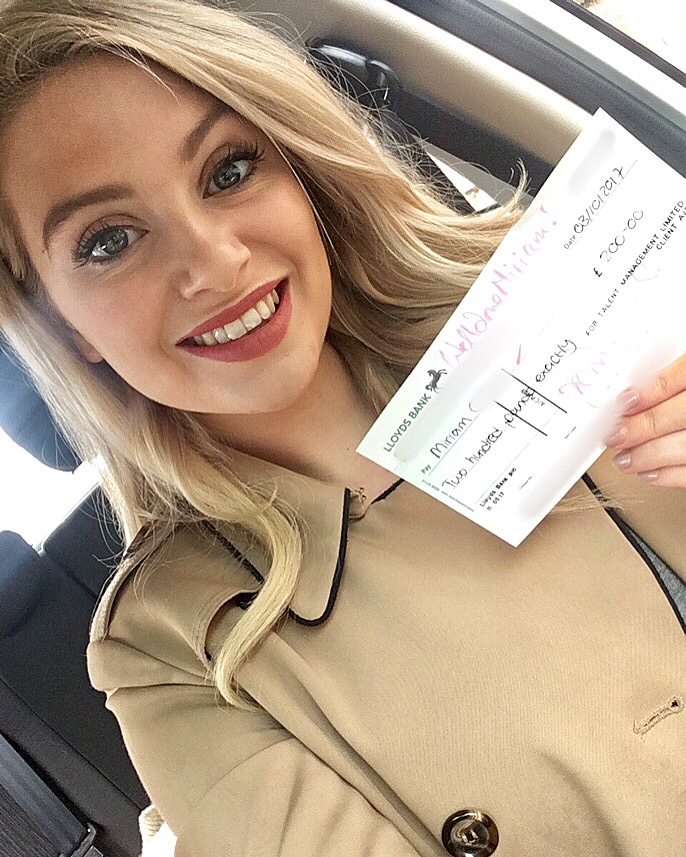 LLOYDS BANK
Well done Miriam!
Date 03/10/2017
Pay Miriam C
£ 200-00
Two hundred pounds exactly
FOR TALENT MANAGEMENT LIMITED
CLIENT A/C
Lloyds Bank plc